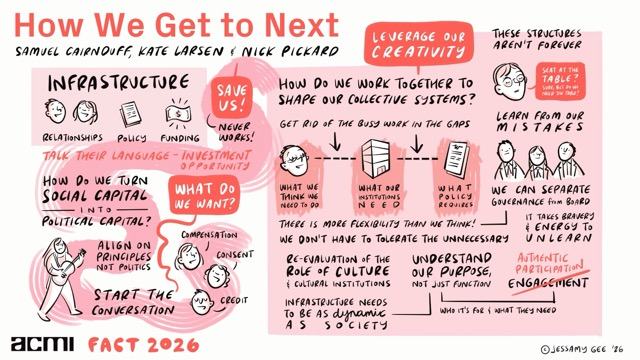 How We Get to Next
SAMUEL CAIRNDUFF, KATE LARSEN & NICK PICKARD
INFRASTRUCTURE
RELATIONSHIPS
POLICY
$
FUNDING
SAVE
US!
NEVER
WORKS!
TALK THEIR LANGUAGE - INVESTMENT
OPPORTUNITY
HOW DO WE TURN
SOCIAL CAPITAL
INTO
POLITICAL CAPITAL?
WHAT DO
WE WANT?
COMPENSATION
CONSENT
CREDIT
ALIGN ON
PRINCIPLES
NOT POLITICS
START THE
CONVERSATION
LEVERAGE OUR
CREATIVITY
HOW DO WE WORK TOGETHER TO
SHAPE OUR COLLECTIVE SYSTEMS?
GET RID OF THE BUSY WORK IN THE GAPS
WHAT WE
THINK WE
NEED TO DO
WHAT OUR
INSTITUTIONS
NEED
WHAT
POLICY
REQUIRES
THERE IS MORE FLEXIBILITY THAN WE THINK!
WE DON'T HAVE TO TOLERATE THE UNNECESSARY
RE-EVALUATION OF THE
ROLE OF CULTURE
& CULTURAL INSTITUTIONS
INFRASTRUCTURE NEEDS
TO BE AS dynamic
AS SOCIETY
UNDERSTAND
OUR PURPOSE,
NOT JUST FUNCTION
WHO IT'S FOR & WHAT THEY NEED
THESE STRUCTURES
AREN'T FOREVER
SEAT AT THE
TABLE?
SURE, BUT DO WE
NEED THE TABLE?
LEARN FROM OUR
MISTAKES
WE CAN SEPARATE
GOVERNANCE from BOARD
IT TAKES BRAVERY
& ENERGY TO
UNLEARN
AUTHENTIC
PARTICIPATION
ENGAGEMENT
acmi FACT 2026
© JESSAMY GEE '26